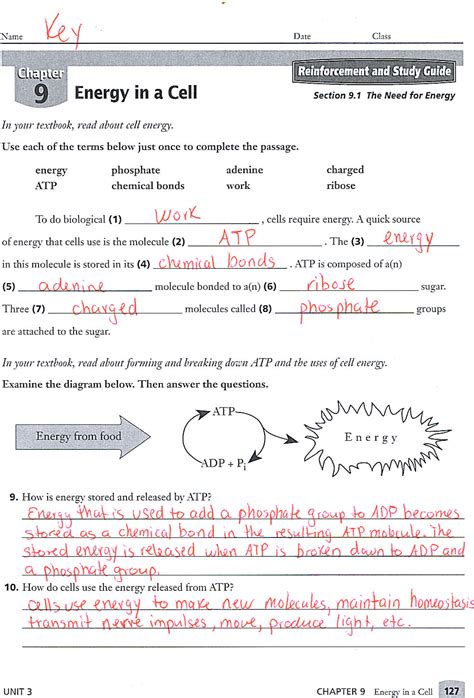 Name Key Date Class
Chapter 9 Energy in a Cell
Reinforcement and Study Guide
Section 9.1 The Need for Energy
In your textbook, read about cell energy.
Use each of the terms below just once to complete the passage.
energy phosphate adenine charged
ATP chemical bonds work ribose
To do biological (1) work , cells require energy. A quick source
of energy that cells use is the molecule (2) ATP . The (3) energy
in this molecule is stored in its (4) chemical bonds . ATP is composed of a(n)
(5) adenine molecule bonded to a(n) (6) ribose sugar.
Three (7) charged molecules called (8) phosphate groups
are attached to the sugar.
In your textbook, read about forming and breaking down ATP and the uses of cell energy.
Examine the diagram below. Then answer the questions.
Energy from food
ATP
ADP + Pi
Energy
9. How is energy stored and released by ATP?
Energy that is used to add a phosphate group to ADP becomes
stored as a chemical bond in the resulting ATP molecule. The
stored energy is released when ATP is broken down to ADP and
a phosphate group.
10. How do cells use the energy released from ATP?
cells use energy to make new molecules, maintain homeostasis
transmit nerve impulses, move, produce light, etc.
UNIT 3 CHAPTER 9 Energy in a Cell 127